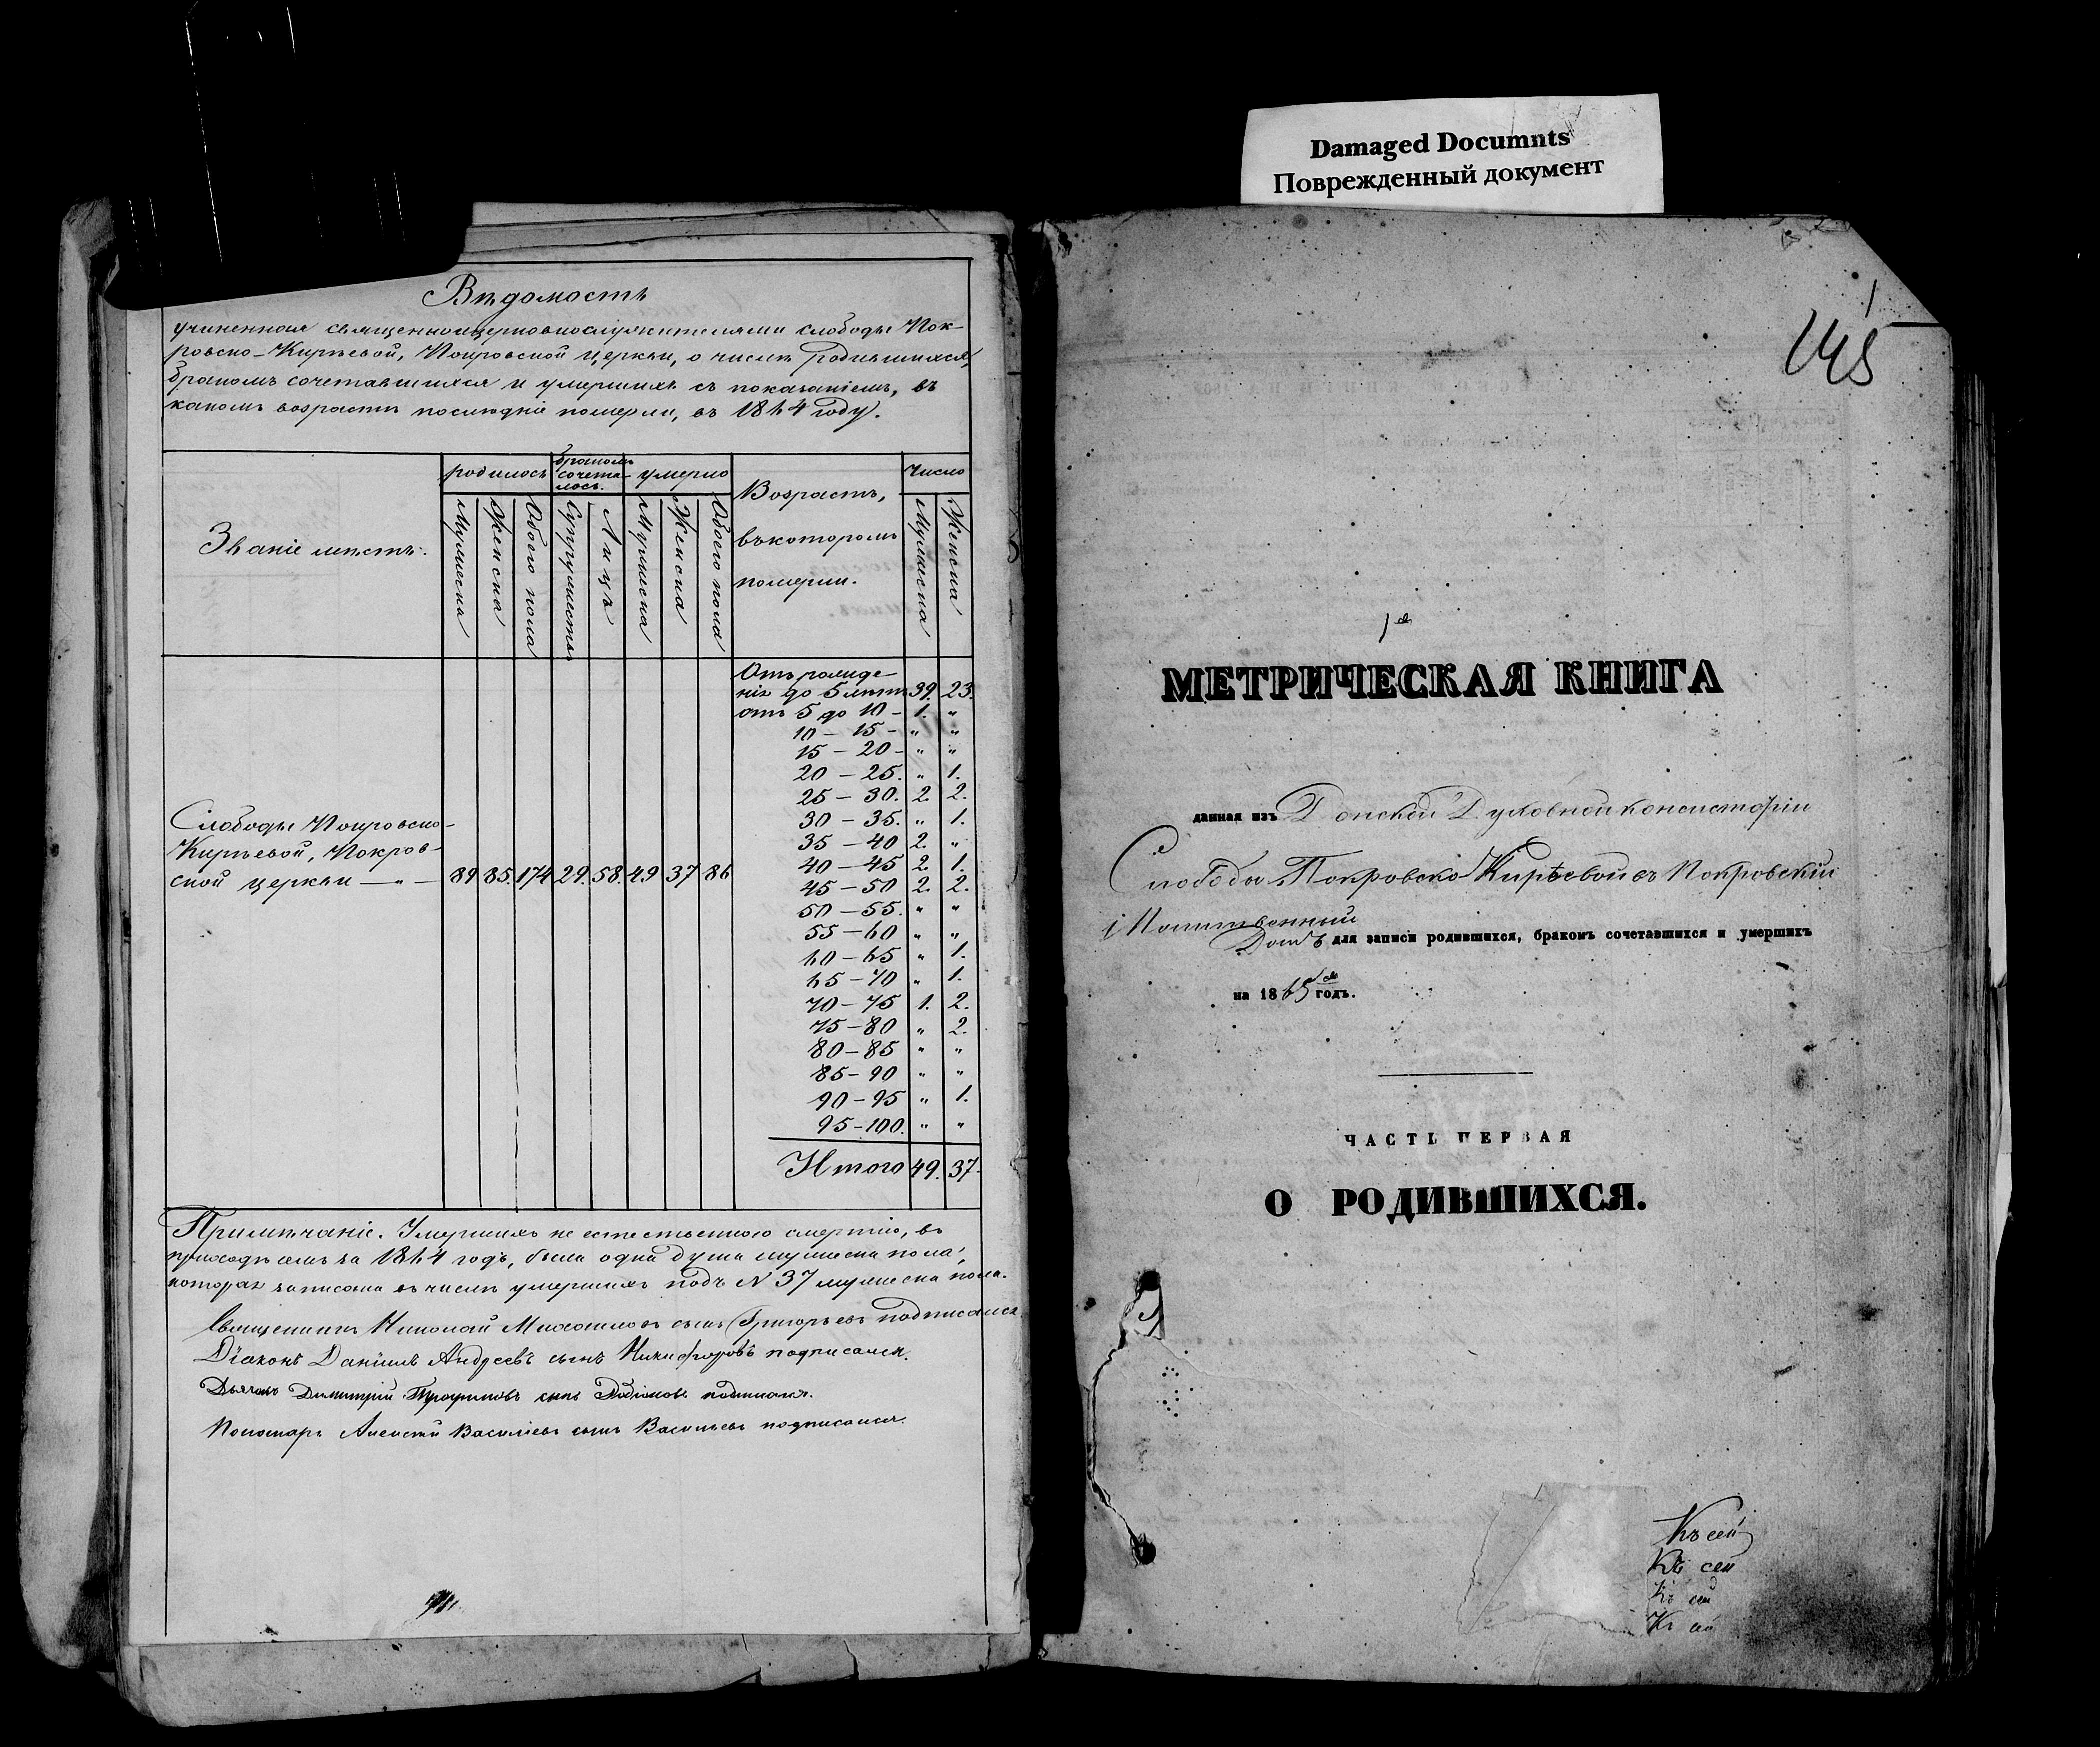 Damaged Documnts
Поврежденный документ
Вѣдомость
учиненная священноцерковнослужителями слободы Пок-
ровско-Кирѣевой, Покровской церкви, о числѣ родившихся,
бракомъ сочетавшихся и умершихъ съ показаніемъ, въ
какомъ возрастѣ послѣдніе померли, въ 1864 году.
Званіе мѣстъ.
родилось
бракомъ сочета-
лось.
умерло
Возрастъ,
въ которомъ
померли.
Число
Мужеска
Женска
Обоего пола
Супружествъ
Лицъ
Мужеска
Женска
Обоего пола
Мужеска
Женска
Отъ рожде-
нія до 5 лѣтъ 39. 23.
отъ 5 до 10 - 1. "
10 - 15 - " "
15 - 20 - " "
20 - 25. " 1.
25 - 30. 2. 2.
30 - 35. " 1.
35 - 40 2. "
40 - 45 2. 1.
45 - 50 2. 2.
50 - 55. " "
55 - 60 " "
60 - 65 " 1.
65 - 70 " 1.
70 - 75 1. 2.
75 - 80 " 2.
80 - 85 " "
85 - 90 " "
90 - 95 " 1.
95 - 100. " "
Итого 49. 37.
Слободы Покровско-
Кирѣевой, Покров-
ской церкви — " — 89 85. 174 29. 58. 49 37 86
Примѣчаніе. Умершихъ не естественною смертію, въ
приходѣ семъ за 1864 годъ, была одна душа мужеска пола,
которая записана въ числѣ умершихъ подъ N 37 мужеска пола.
Священникъ Николай Михайловъ сынъ Григорьевъ подписался
Діаконъ Даніилъ Андреевъ сынъ Никифоровъ подписался.
Дьячокъ Димитрій Трофимовъ сынъ подписался.
Пономарь Алексѣй Василіевъ сынъ Васильевъ подписался.
145
1я
МЕТРИЧЕСКАЯ КНИГА
данная изъ Донской Духовной консисторіи
Слободы Покровско Кирѣевой въ Покровскій
Молитвенный
Домъ для записи родившихся, бракомъ сочетавшихся и умершихъ
на 1865 годъ.
ЧАСТЬ ПЕРВАЯ
О РОДИВШИХСЯ.
Къ сей
Къ сей
Къ сей
Къ сей